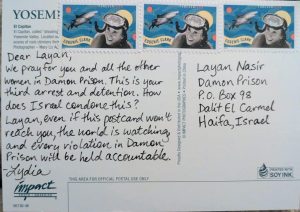 YOSEM
El Capitan
EUGENIE CLARK
EUGENIE CLARK
EUGENIE CLARK
Dear Layan,
We pray for you and all the other
women in Damon Prison. This is your
third arrest and detention. How
does Israel condone this?
Layan, even if this postcard won't
reach you, the world is watching
and every violation in Damon
Prison will be held accountable.
Lydia
Layan Nasir
Damon Prison
P.O. Box 98
Dalit El Carmel
Haifa, Israel
impact
THIS AREA FOR OFFICIAL POSTAL USE ONLY
PRINTED WITH
SOY INK